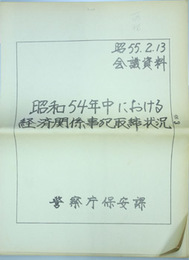 昭55.2.13
会議資料
昭和54年中における
経済関係事犯取締状況
警察庁保安課